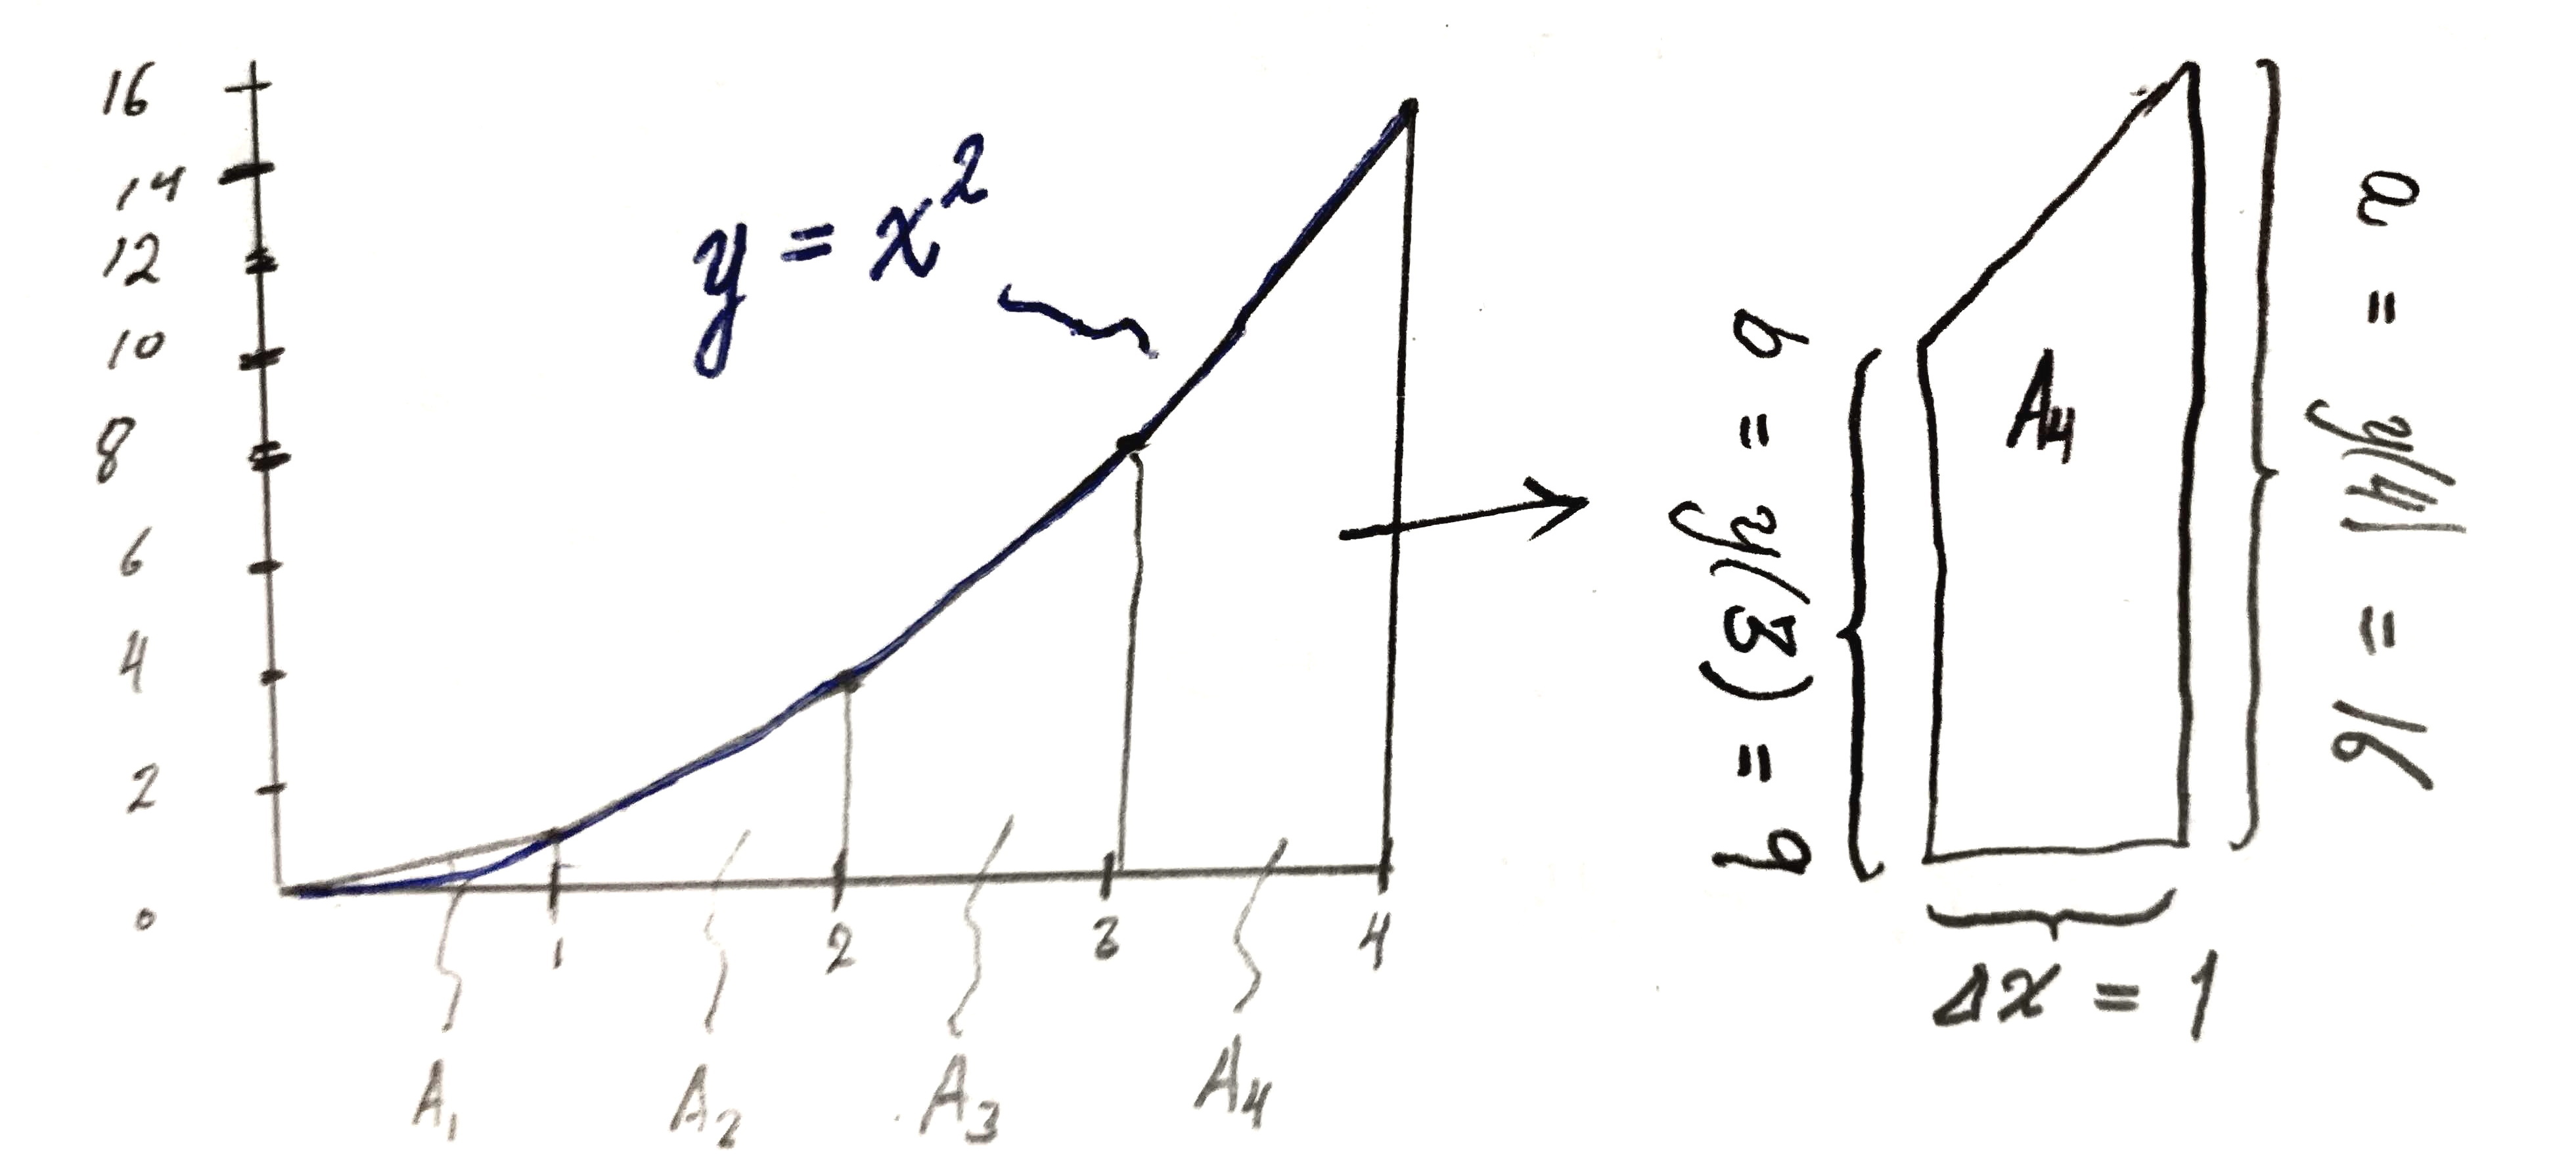 16
14
12
10
8
6
4
2
0
1 2 3 4
y = x²
A₁ A₂ A₃ A₄
A₄
b = y(3) = 9
a = y(4) = 16
Δx = 1